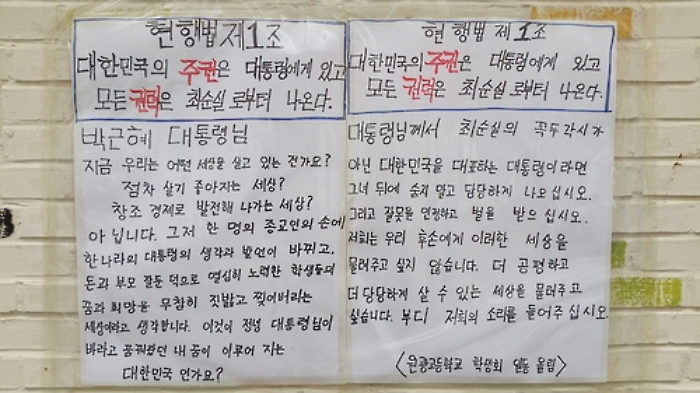 현행법 제1조
대한민국의 주권은 대통령에게 있고
모든 권력은 최순실 로부터 나온다.
박근혜 대통령님
지금 우리는 어떤 세상을 살고 있는 건가요?
점차 살기 좋아지는 세상?
창조 경제로 발전해 나가는 세상?
아닙니다. 그저 한 명의 종교인의 손에
한 나라의 대통령의 생각과 발언이 바뀌고,
돈과 부모 잘둔 덕으로 열심히 노력한 학생들의
꿈과 희망을 무참히 짓밟고 찢어버리는
세상이라고 생각합니다. 이것이 정녕 대통령님이
바라고 꿈꿔왔던 내 꿈이 이루어 지는
대한민국 인가요?
현행법 제1조
대한민국의 주권은 대통령에게 있고
모든 권력은 최순실로부터 나온다.
대통령님께서 최순실의 꼭두각시가
아닌 대한민국을 대표하는 대통령이라면
그녀 뒤에 숨지 말고 당당하게 나오십시오.
그리고 잘못을 인정하고 벌을 받으십시오.
저희는 우리 후손에게 이러한 세상을
물려주고 싶지 않습니다. 더 공평하고
더 당당하게 살 수 있는 세상을 물려주고
싶습니다. 부디 저희의 소리를 들어주십시오.
<원광고등학교 학생회 일동 올림>